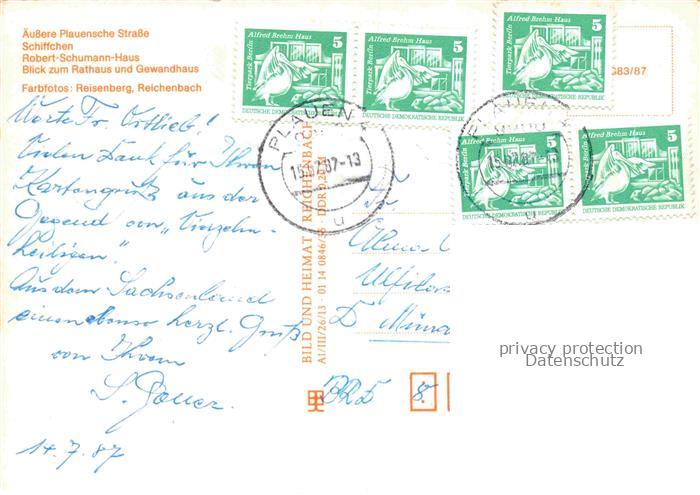 Äußere Plauensche Straße
Schiffchen
Robert-Schumann-Haus
Blick zum Rathaus und Gewandhaus
Farbfotos: Reisenberg, Reichenbach
Werte Fr. Ortlieb!
Vielen Dank für Ihren
Kartengruß aus der
Gegend von „Vierzehn-
heiligen“.
Aus dem Sachsenland
einen ebenso herzl. Gruß
von Ihrem
S.
14.7.87
Alfred Brehm Haus 5
Tierpark Berlin
DEUTSCHE DEMOKRATISCHE REPUBLIK
Alfred Brehm Haus 5
Tierpark Berlin
DEUTSCHE DEMOKRATISCHE REPUBLIK
Alfred Brehm Haus 5
Tierpark Berlin
DEUTSCHE DEMOKRATISCHE REPUBLIK
Alfred Brehm Haus 5
Tierpark Berlin
DEUTSCHE DEMOKRATISCHE REPUBLIK
Alfred Brehm Haus 5
Tierpark Berlin
DEUTSCHE DEMOKRATISCHE REPUBLIK
G83/87
PLAUEN
-13
u
PLAUEN
u
BILD UND HEIMAT REICHENBACH
A1/III/26/13 01 14 0846/
Fr.
Ulfilas
D
BRD 8
privacy protection
Datenschutz